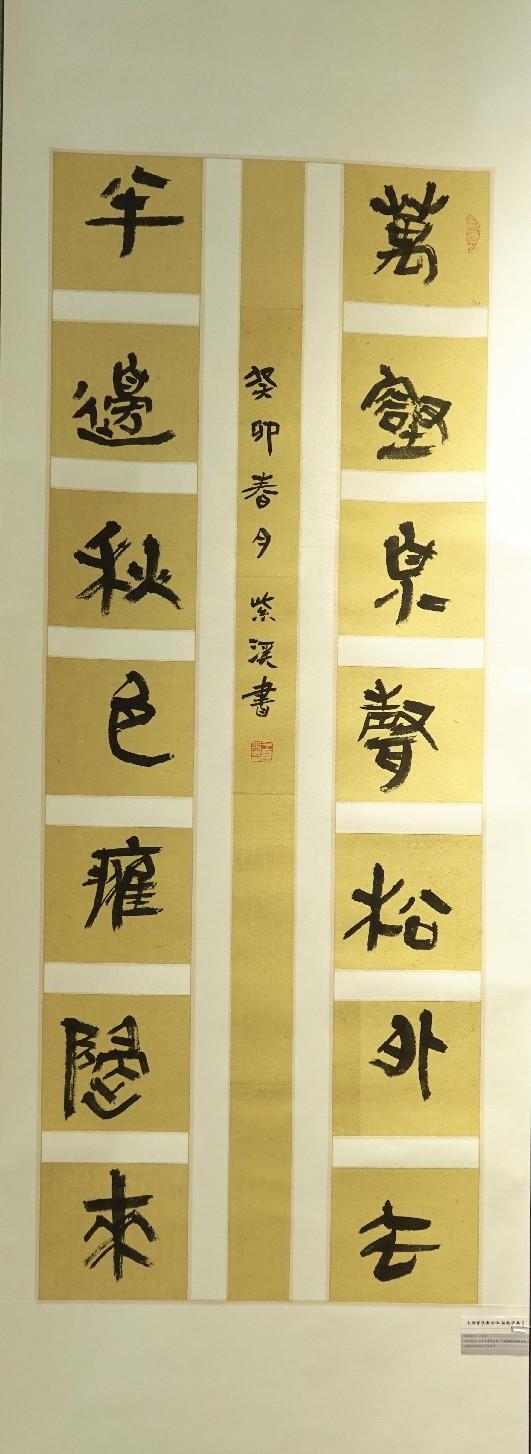 萬壑泉聲松外去
癸卯春月 紫溪書
半邊秋色雁隱來